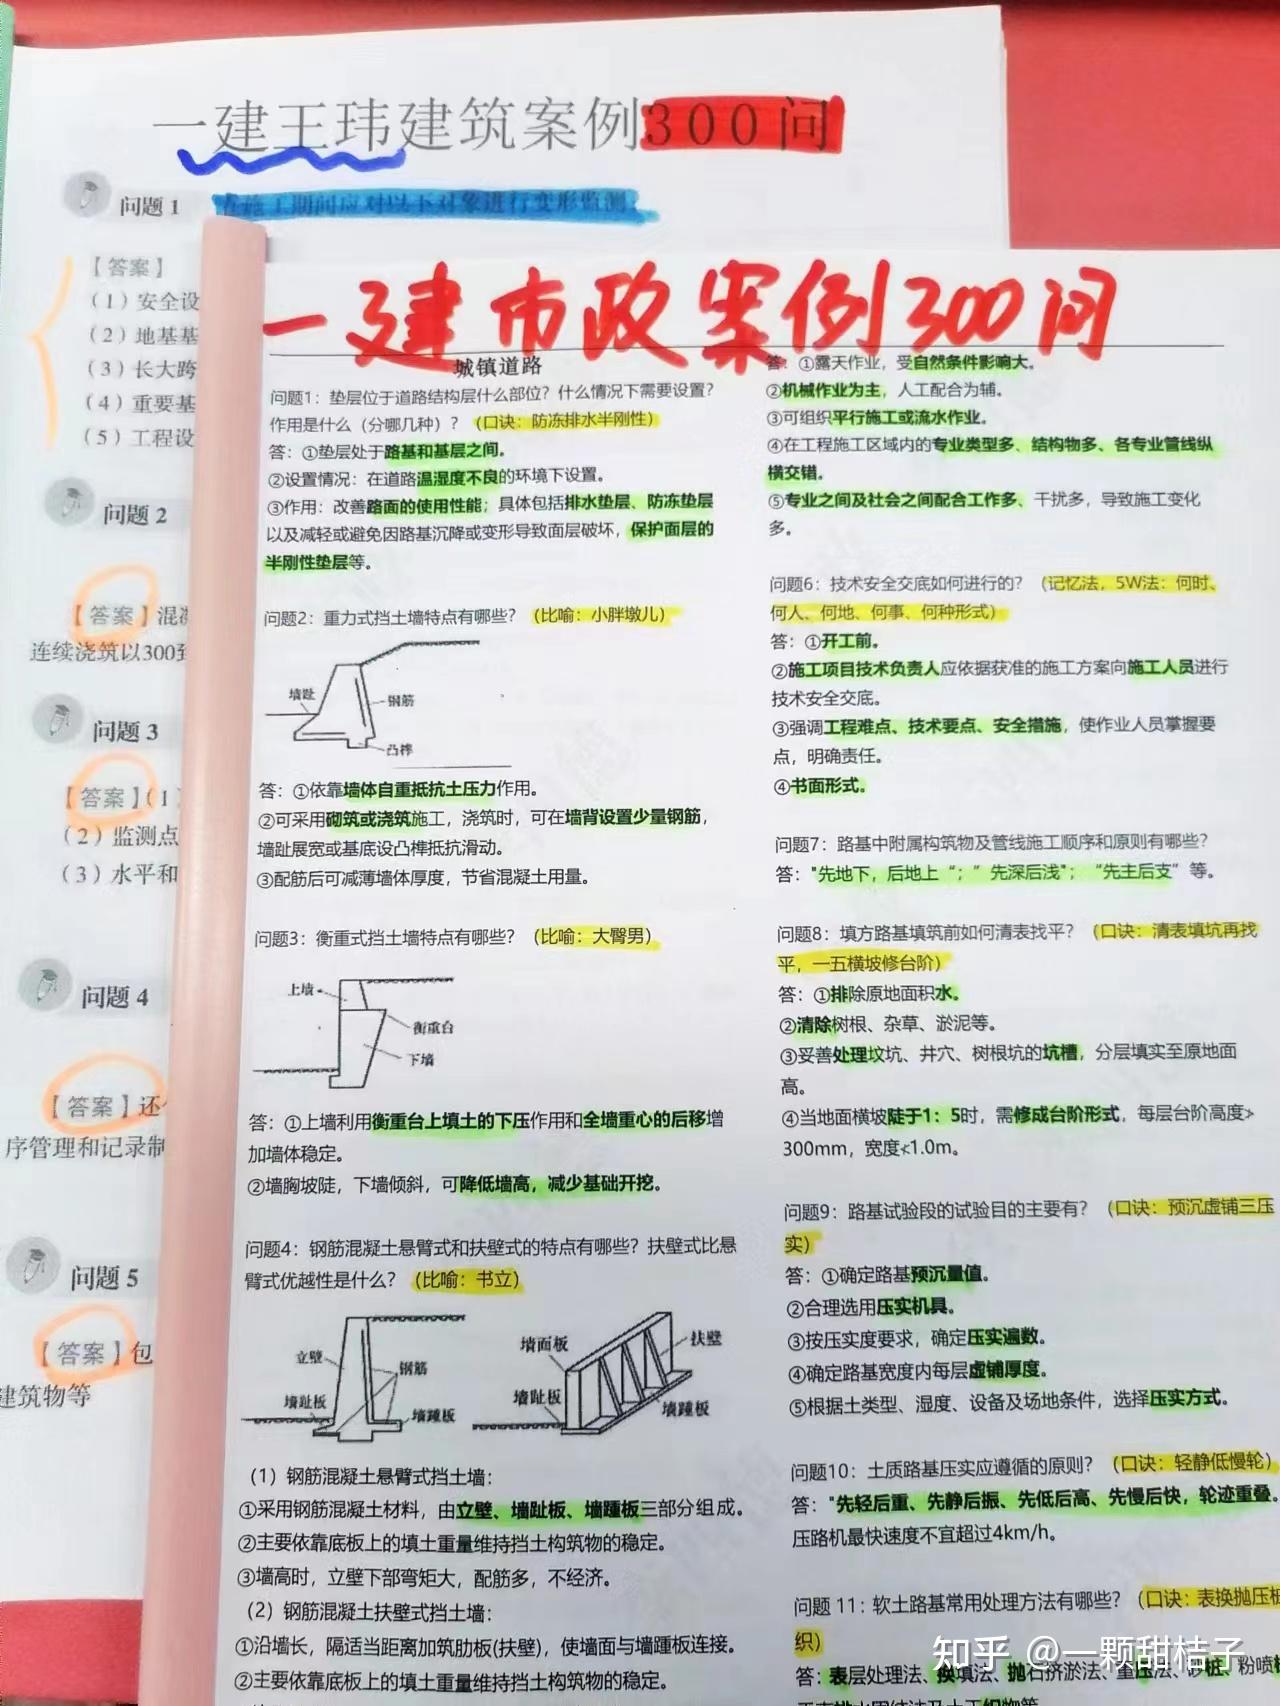 一建王玮建筑案例300问
问题 1
在施工期间应对以下对象进行变形监测
【答案】
（1）安全设
（2）地基基
（3）长大跨
（4）重要基
（5）工程设
问题 2
【答案】混凝
连续浇筑以300至
问题 3
【答案】（1）
（2）监测点
（3）水平和
问题 4
【答案】还
序管理和记录制
问题 5
【答案】包
建筑物等
一建市政案例300问
城镇道路
问题1：垫层位于道路结构层什么部位？什么情况下需要设置？
作用是什么（分哪几种）？（口诀：防冻排水半刚性）
答：①垫层处于路基和基层之间。
②设置情况：在道路温湿度不良的环境下设置。
③作用：改善路面的使用性能；具体包括排水垫层、防冻垫层
以及减轻或避免因路基沉降或变形导致面层破坏，保护面层的
半刚性垫层等。
问题2：重力式挡土墙特点有哪些？（比喻：小胖墩儿）
墙趾
钢筋
凸榫
答：①依靠墙体自重抵抗土压力作用。
②可采用砌筑或浇筑施工，浇筑时，可在墙背设置少量钢筋，
墙趾展宽或基底设凸榫抵抗滑动。
③配筋后可减薄墙体厚度，节省混凝土用量。
问题3：衡重式挡土墙特点有哪些？（比喻：大臀男）
上墙
衡重台
下墙
答：①上墙利用衡重台上填土的下压作用和全墙重心的后移增
加墙体稳定。
②墙胸坡陡，下墙倾斜，可降低墙高，减少基础开挖。
问题4：钢筋混凝土悬臂式和扶壁式的特点有哪些？扶壁式比悬
臂式优越性是什么？（比喻：书立）
立壁
钢筋
墙趾板
墙踵板
墙面板
扶壁
墙趾板
墙踵板
（1）钢筋混凝土悬臂式挡土墙：
①采用钢筋混凝土材料，由立壁、墙趾板、墙踵板三部分组成。
②主要依靠底板上的填土重量维持挡土构筑物的稳定。
③墙高时，立壁下部弯矩大，配筋多，不经济。
（2）钢筋混凝土扶壁式挡土墙：
①沿墙长，隔适当距离加筑肋板(扶壁)，使墙面与墙踵板连接。
②主要依靠底板上的填土重量维持挡土构筑物的稳定。
答：①露天作业，受自然条件影响大。
②机械作业为主，人工配合为辅。
③可组织平行施工或流水作业。
④在工程施工区域内的专业类型多、结构物多、各专业管线纵
横交错。
⑤专业之间及社会之间配合工作多、干扰多，导致施工变化
多。
问题6：技术安全交底如何进行的？（记忆法，5W法：何时、
何人、何地、何事、何种形式）
答：①开工前。
②施工项目技术负责人应依据获准的施工方案向施工人员进行
技术安全交底。
③强调工程难点、技术要点、安全措施，使作业人员掌握要
点，明确责任。
④书面形式。
问题7：路基中附属构筑物及管线施工顺序和原则有哪些？
答："先地下，后地上"；"先深后浅"；"先主后支"等。
问题8：填方路基填筑前如何清表找平？（口诀：清表填坑再找
平，一五横坡修台阶）
答：①排除原地面积水。
②清除树根、杂草、淤泥等。
③妥善处理坟坑、井穴、树根坑的坑槽，分层填实至原地面
高。
④当地面横坡陡于1：5时，需修成台阶形式，每层台阶高度≯
300mm，宽度≮1.0m。
问题9：路基试验段的试验目的主要有？（口诀：预沉虚铺三压
实）
答：①确定路基预沉量值。
②合理选用压实机具。
③按压实度要求，确定压实遍数。
④确定路基宽度内每层虚铺厚度。
⑤根据土类型、湿度、设备及场地条件，选择压实方式。
问题10：土质路基压实应遵循的原则？（口诀：轻静低慢轮）
答："先轻后重、先静后振、先低后高、先慢后快，轮迹重叠。
压路机最快速度不宜超过4km/h。
问题 11：软土路基常用处理方法有哪些？（口诀：表换抛压桩
织）
答：表层处理法、换填法、抛石挤淤法、重压法、砂桩、粉喷
知乎 @一颗甜桔子